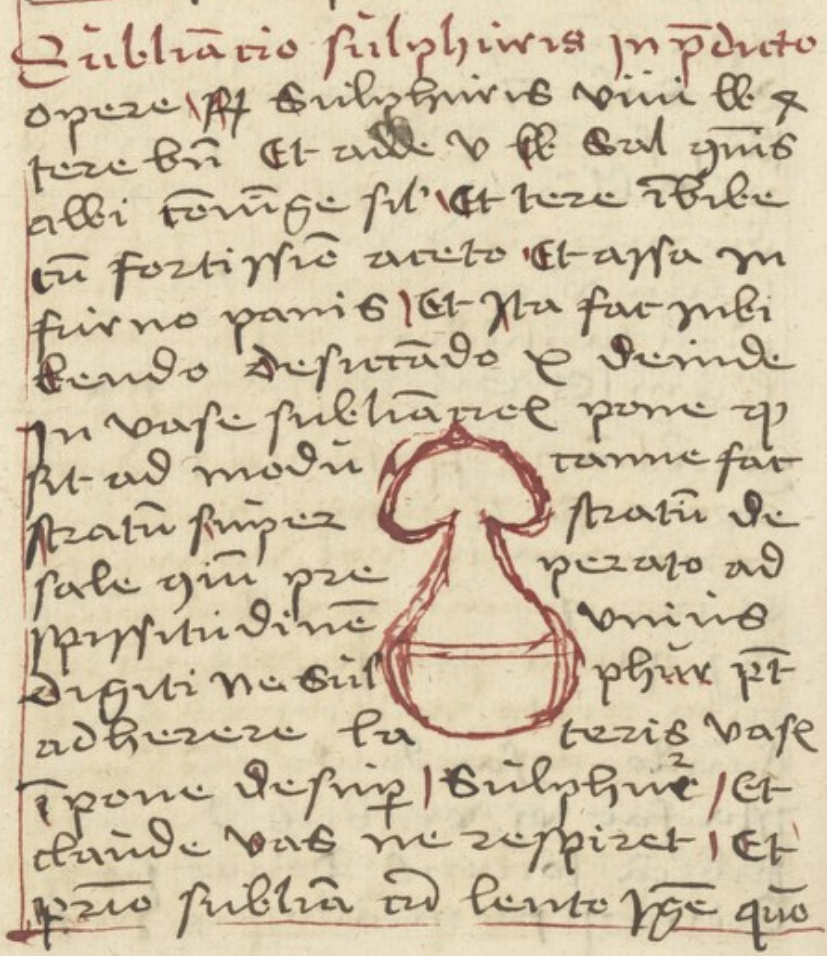 Sublimacio sulphuris in p̄dicto
opere Sulphuris viiii lb
tere bn̄ Et adde v lb Sal
albi sil' Et tere ībibe
cū fortissīo aceto Et assa in
furno panis Et Ita fac inbi
bendo desiccādo x deinde
In vase pone qꝫ
sit ad modū canne fac
stratū super stratū de
sale pre perato ad
spissitudinē vnius
digiti ne Sul phur pt̄
adherere la teris vasꝭ
īpone desuꝑ Sulphur Et
claude vas ne respiret Et
prīo sublīa cū lento Igē quō